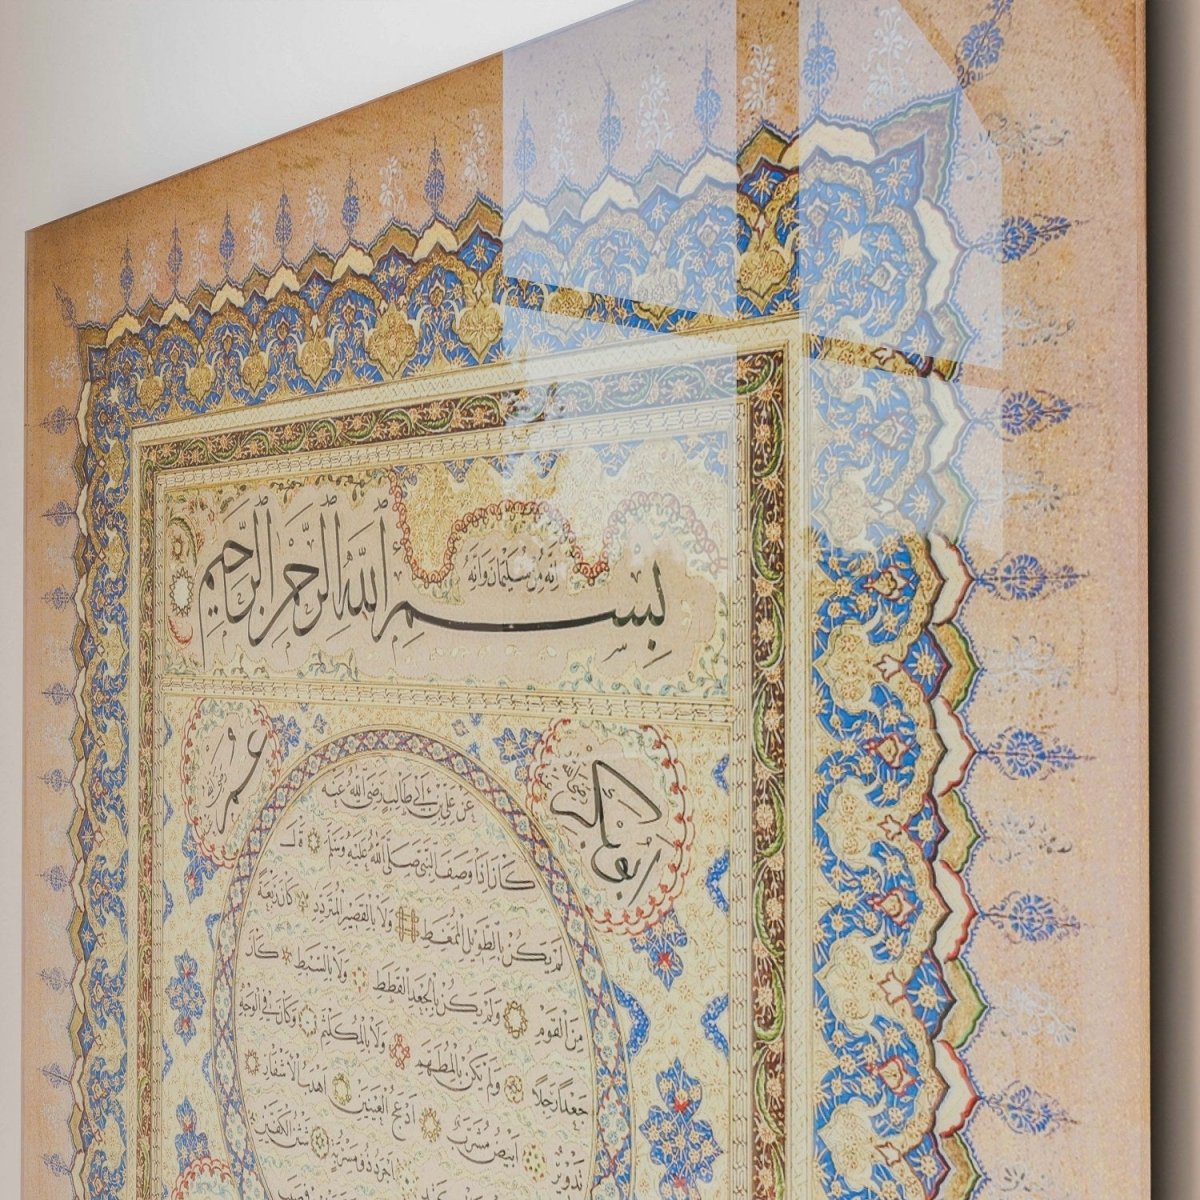 إنه من سليمان وإنه
بِسْمِ اللَّهِ الرَّحْمَنِ الرَّحِيمِ
ابوبكر
عمر
عن علي بن أبي طالب رضي الله عنه
كان إذا وصف النبي صلى الله عليه وسلم قال
لم يكن بالطويل الممغط ولا بالقصير المتردد كان ربعة
من القوم ولم يكن بالجعد القطط ولا بالسبط كان
جعدا رجلا ولم يكن بالمطهم ولا بالمكلثم وكان في الوجه
تدوير ابيض مشرب ادعج العينين اهدب الأشفار
اجرد ذو مسربة شثن الكفين